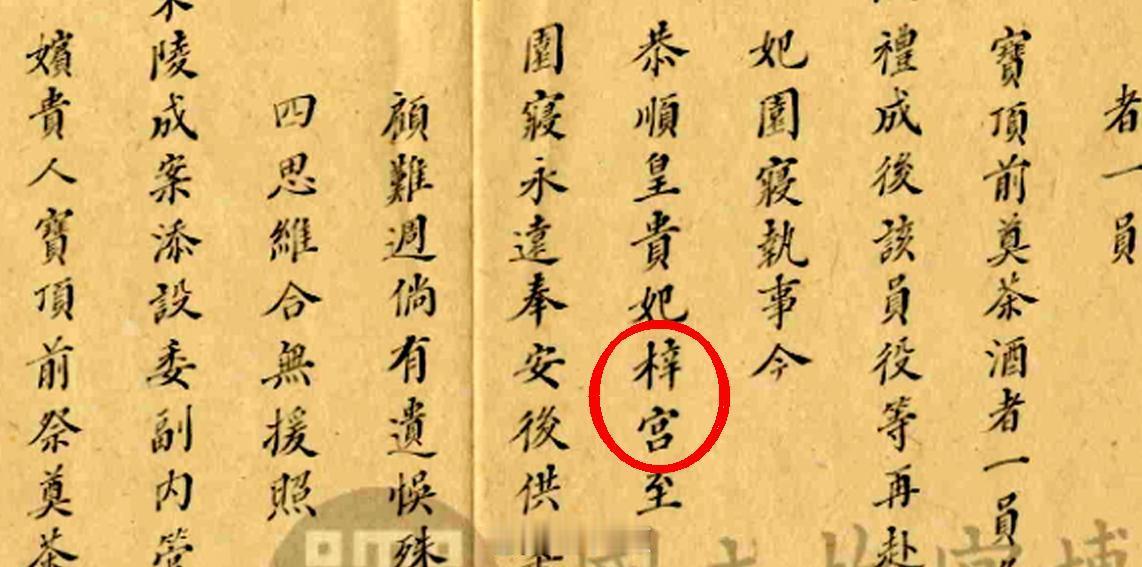 者一員
寶頂前奠茶酒者一員
禮成後該員役等再赴
妃園寢執事今
恭順皇貴妃梓宮至
園寢永遠奉安後供
顧難週倘有遺悞殊
四思維合無援照
陵成案添設委副內管
嬪貴人寶頂前祭奠茶